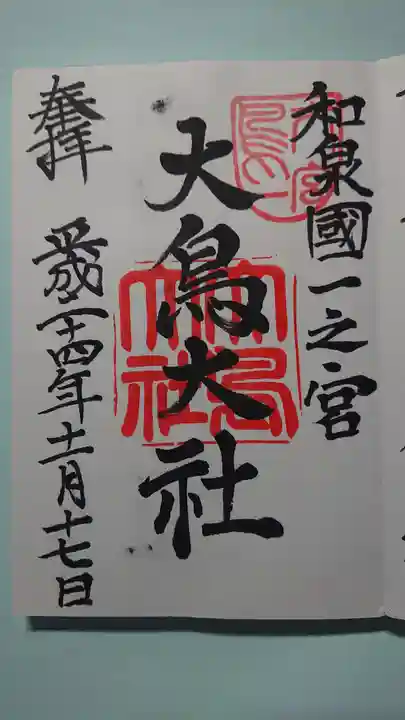 和泉國一之宮
大鳥大社
大鳥大社
奉拝
平成二十四年十一月十七日